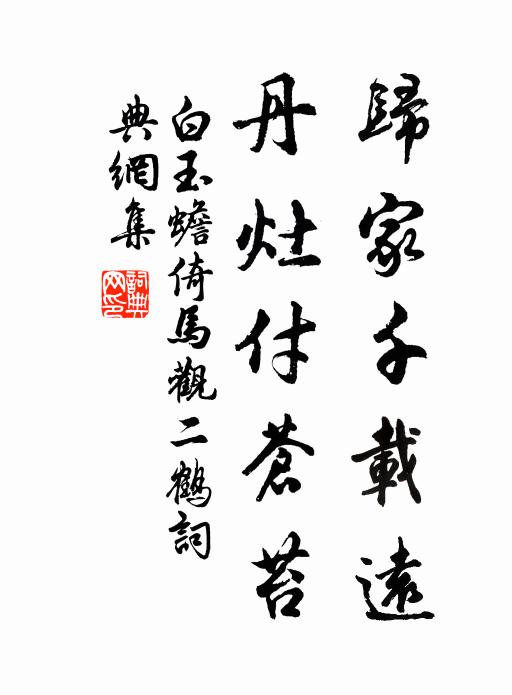 歸家千載遠
丹灶付蒼苔
白玉蟾倚馬觀二鶴詞
典網集
詞典网印